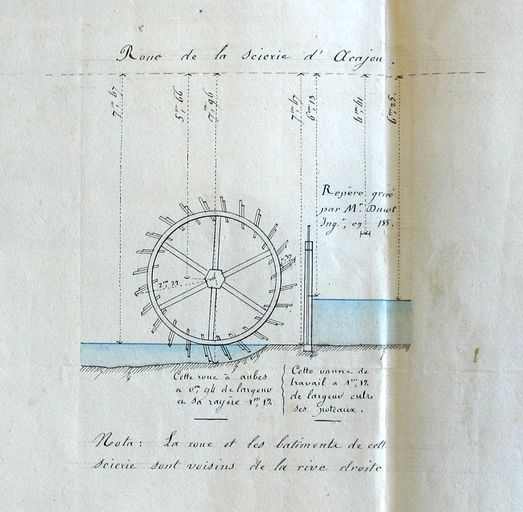 Roue de la Scierie d'Acajou.
7m 67
5m 66
7m 96
7m 67
6m 13
4m 61
6m 25
Repère gravé
par Mr
Ingr, en 185.
2m 22
Cette roue à aubes
a 0m 94 de largeur
et sa rayère 1m 12.
Cette vanne de
travail a 1m, 12
de largeur entre
ses poteaux.
Nota: La roue et les batiments de cett
scierie sont voisins de la rive droite